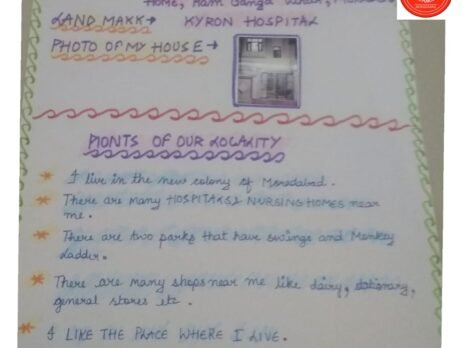 Home, Ram Ganga Vihar,
LAND MARK → KYRON HOSPITAL
PHOTO OF MY HOUSE →
PIONTS OF OUR LOCALITY
* I live in the new colony of Moradabad.
* There are many HOSPITALS & NURSING HOMES near
me.
* There are two parks that have swings and Monkey
ladder.
* There are many shops near me like dairy, stationary,
general stores etc.
* I LIKE THE PLACE WHERE I LIVE.